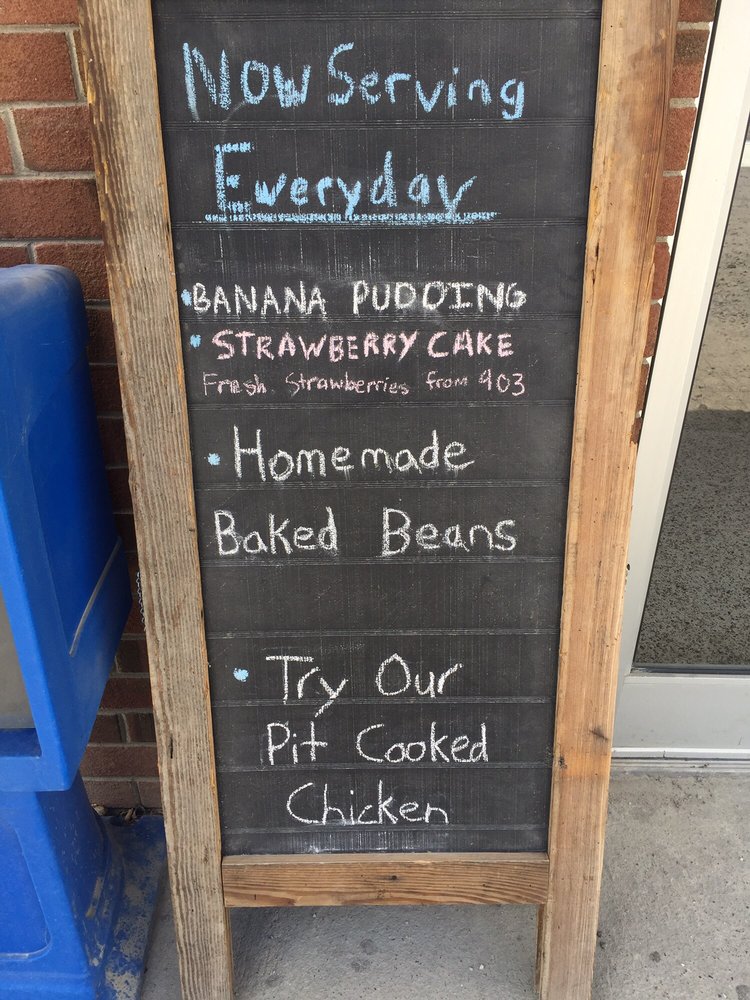 Now Serving
Everyday
BANANA PUDDING
STRAWBERRY CAKE
Fresh Strawberries from 903
Homemade
Baked Beans
Try Our
Pit Cooked
Chicken